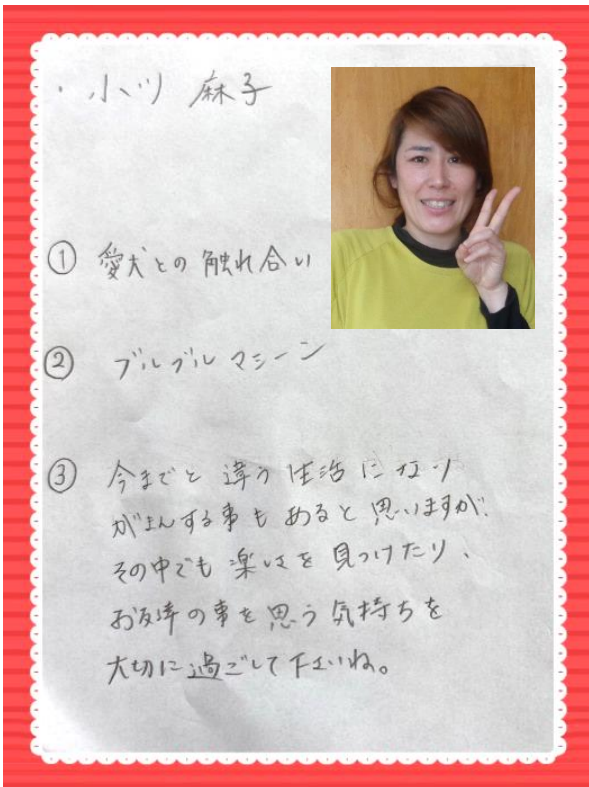 ・小川 麻子
① 愛犬との触れ合い
② ブルブルマシーン
③ 今までと違う生活になり
がまんする事もあると思いますが、
その中でも楽しさを見つけたり、
お友達の事を思う気持ちを
大切に過ごして下さいね。